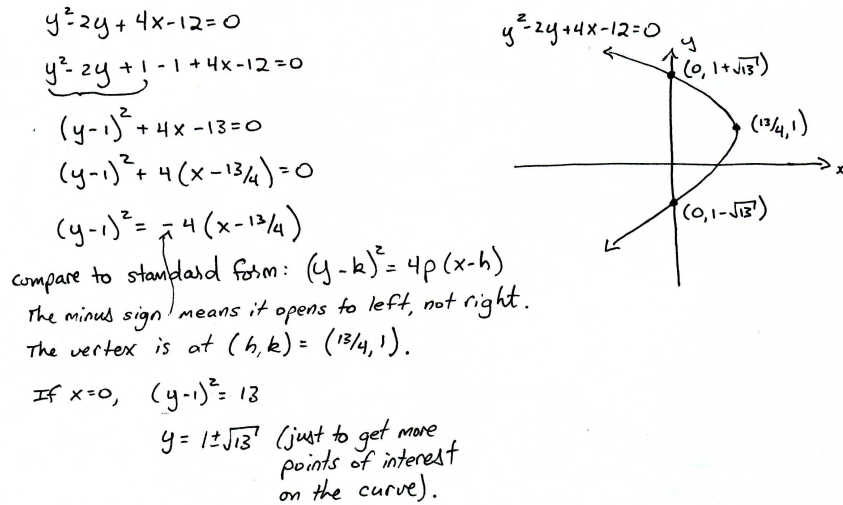 y²-2y+4x-12=0
y²-2y+1-1+4x-12=0
(y-1)²+4x-13=0
(y-1)²+4(x-13/4)=0
(y-1)²=-4(x-13/4)
compare to standard form: (y-k)²=4p(x-h)
The minus sign means it opens to left, not right.
The vertex is at (h,k)=(13/4,1).
If x=0, (y-1)²=13
y=1±√13 (just to get more
points of interest
on the curve).
y²-2y+4x-12=0
y
(0, 1+√13)
(13/4,1)
x
(0,1-√13)